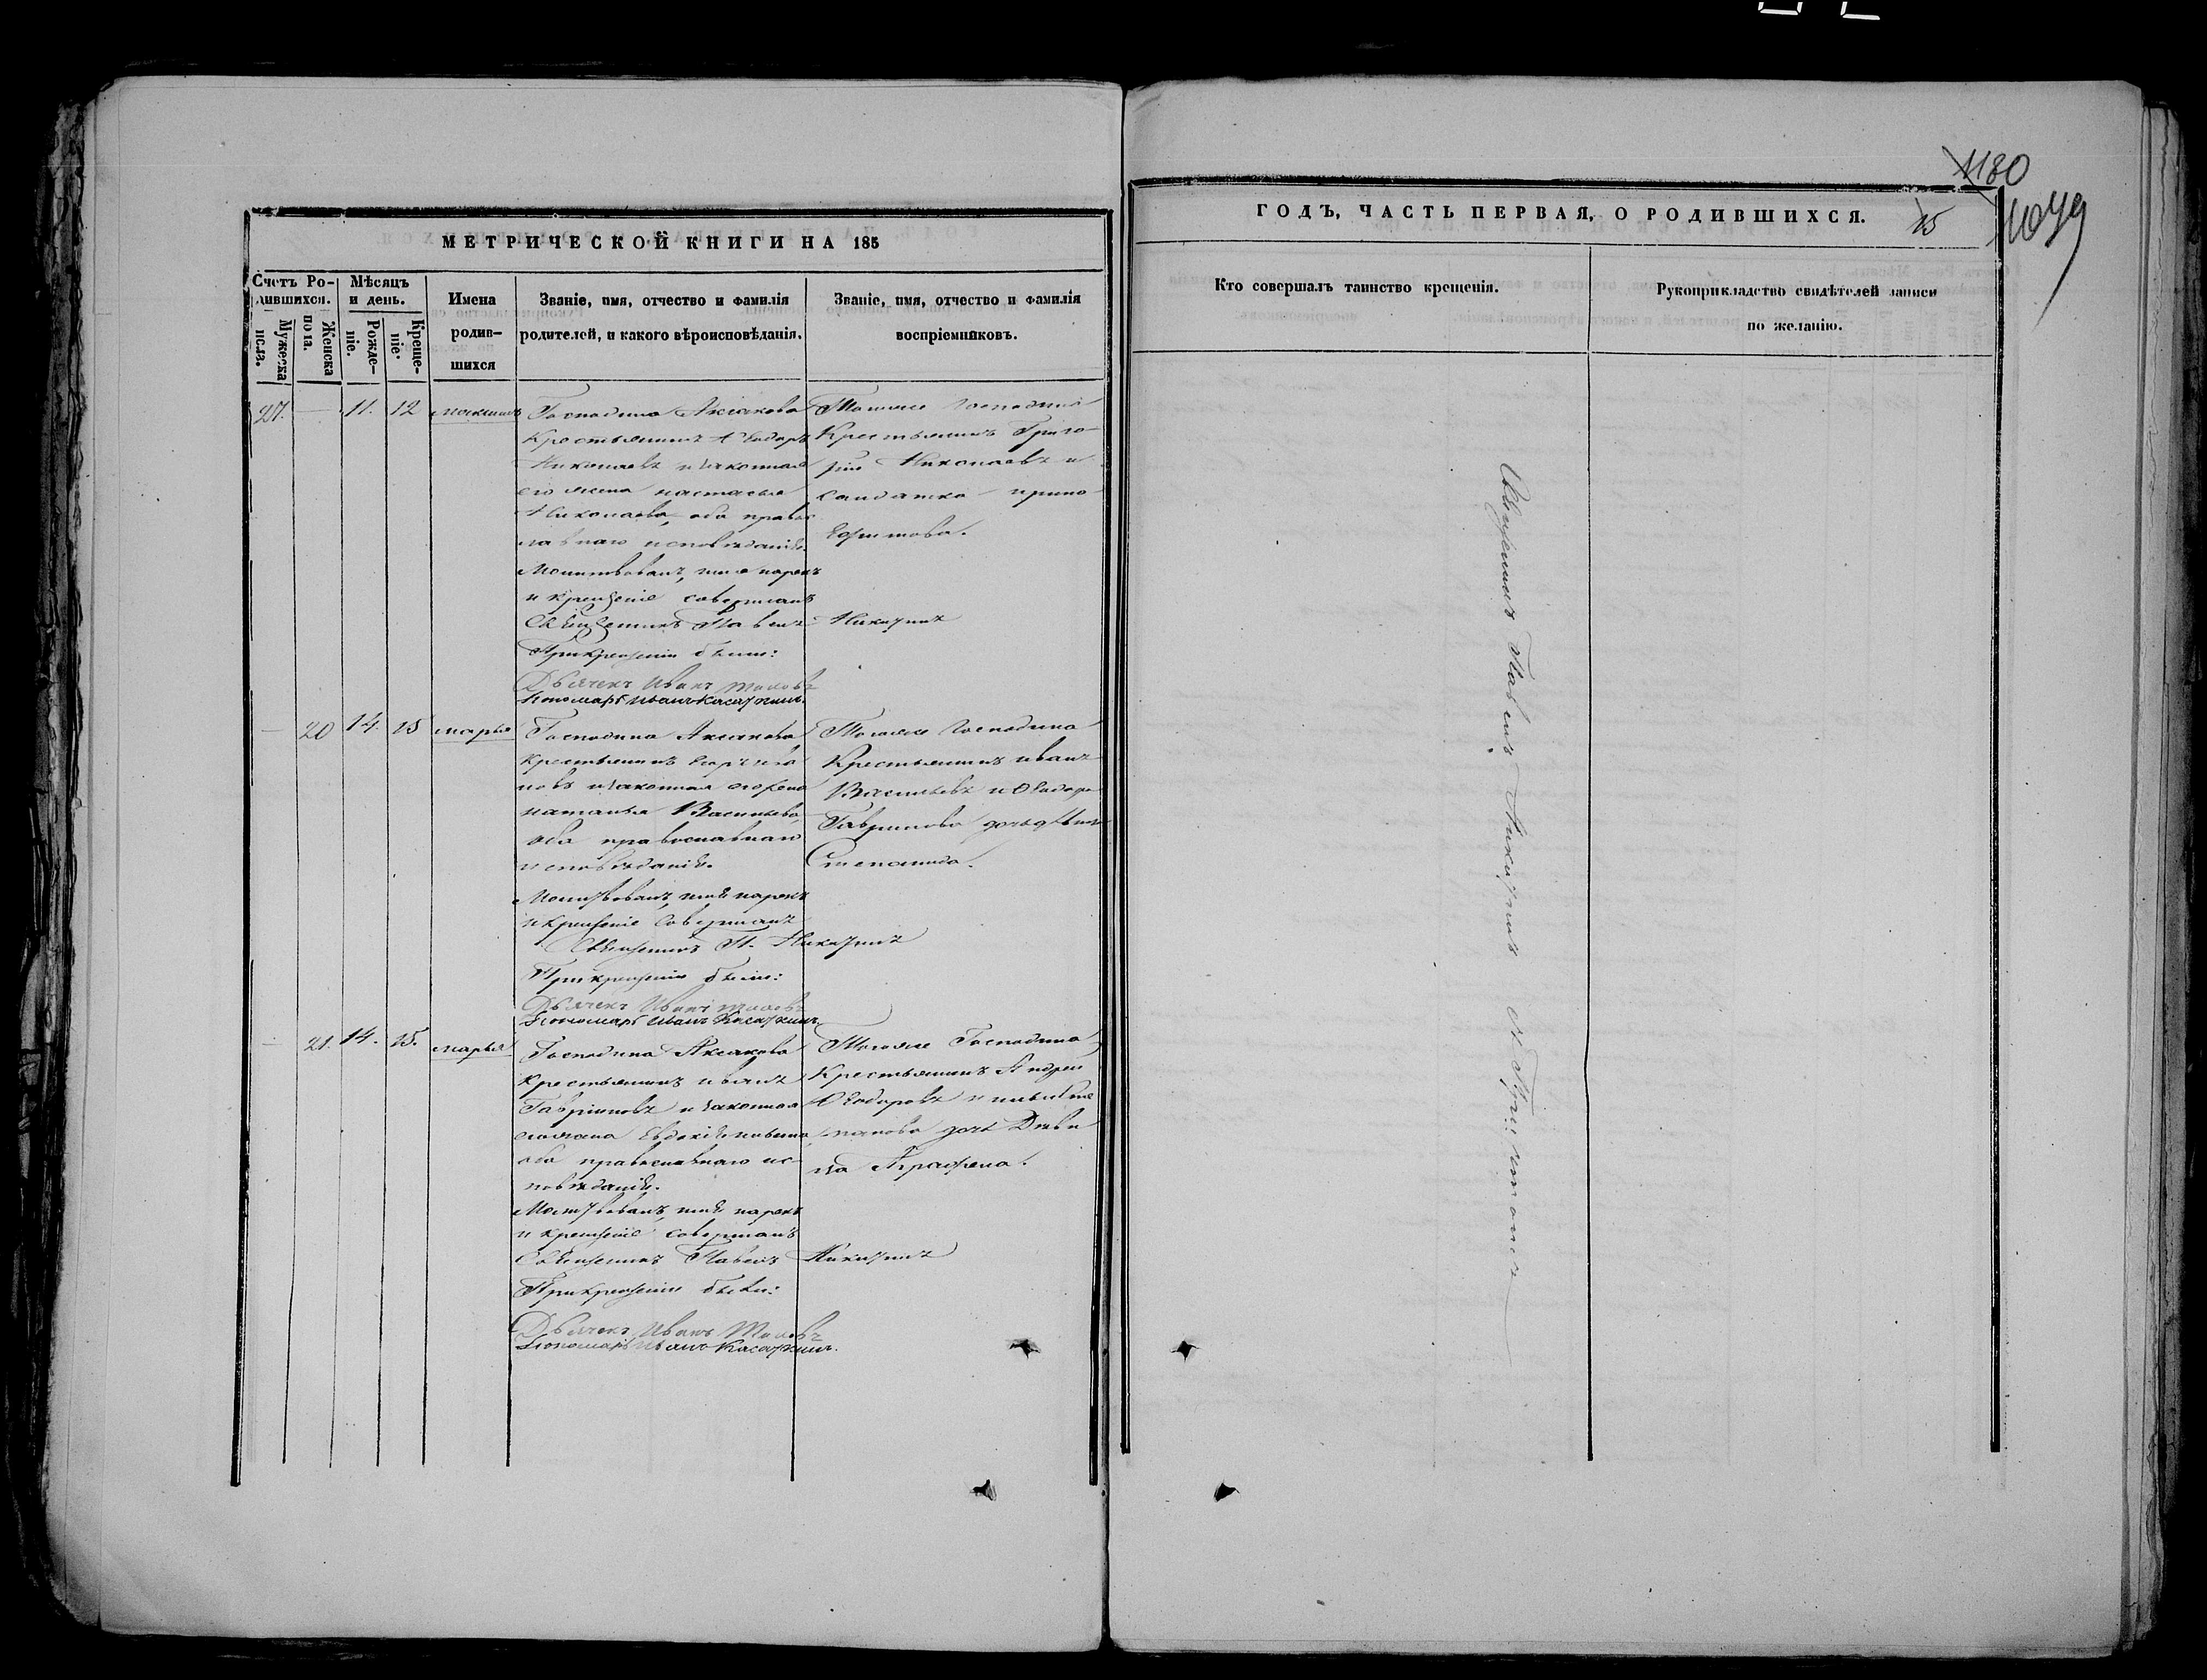 1180
1079
МЕТРИЧЕСКОЙ КНИГИ НА 185
Счетъ Родившихся.
Мужеска пола.
Женска пола.
Мѣсяцъ и день.
Рожденіе.
Крещеніе.
Имена родившихся
Званіе, имя, отчество и фамилія
родителей, и какого вѣроисповѣданія.
Званіе, имя, отчество и фамилія
воспріемниковъ.
27. — 11. 12 Максимъ
Господина Аксакова
Крестьянинъ Ѳеодоръ
Николаевъ и законная
его жена Настасья
Николаева, оба правос
лавнаго исповѣданія.
Молитвовалъ, имя нарекъ
и крещеніе совершалъ
Священникъ Павелъ Никитинъ
При крещеніи были:
Дьячекъ Иванъ
Пономарь Иванъ Касаткинъ.
Тогоже Господина
Крестьянинъ Григо-
рій Николаевъ и
солдатка Ирина
— 20 14. 15 Марья
Господина Аксакова
Крестьянинъ
и законная его жена
Наталья Васильева,
оба православнаго
исповѣданія.
Молитвовалъ, имя нарекъ
и крещеніе совершалъ
Священникъ П. Никитинъ
При крещеніи были:
Дьячекъ Иванъ
Пономарь Иванъ Касаткинъ.
Тогоже Господина
Крестьянинъ Иванъ
Васильевъ и Ѳеодора
Гаврилова дочь
Степанида.
— 21. 14. 15. Марья
Господина Аксакова
Крестьянинъ Иванъ
Гавриловъ и законная
его жена Евдокія
оба православнаго ис-
повѣданія.
Молитвовалъ, имя нарекъ
и крещеніе совершалъ
Священникъ Павелъ Никитинъ
При крещеніи были:
Дьячекъ Иванъ
Пономарь Иванъ Касаткинъ.
Тогоже Господина
Крестьянинъ Андрей
Ѳеодоровъ и
дочь Дѣви
ца Аграфена.
ГОДЪ, ЧАСТЬ ПЕРВАЯ, О РОДИВШИХСЯ.
15
Кто совершалъ таинство крещенія.
Рукоприкладство свидѣтелей записи
по желанію.
Священникъ Павелъ Никитинъ с Причтомъ